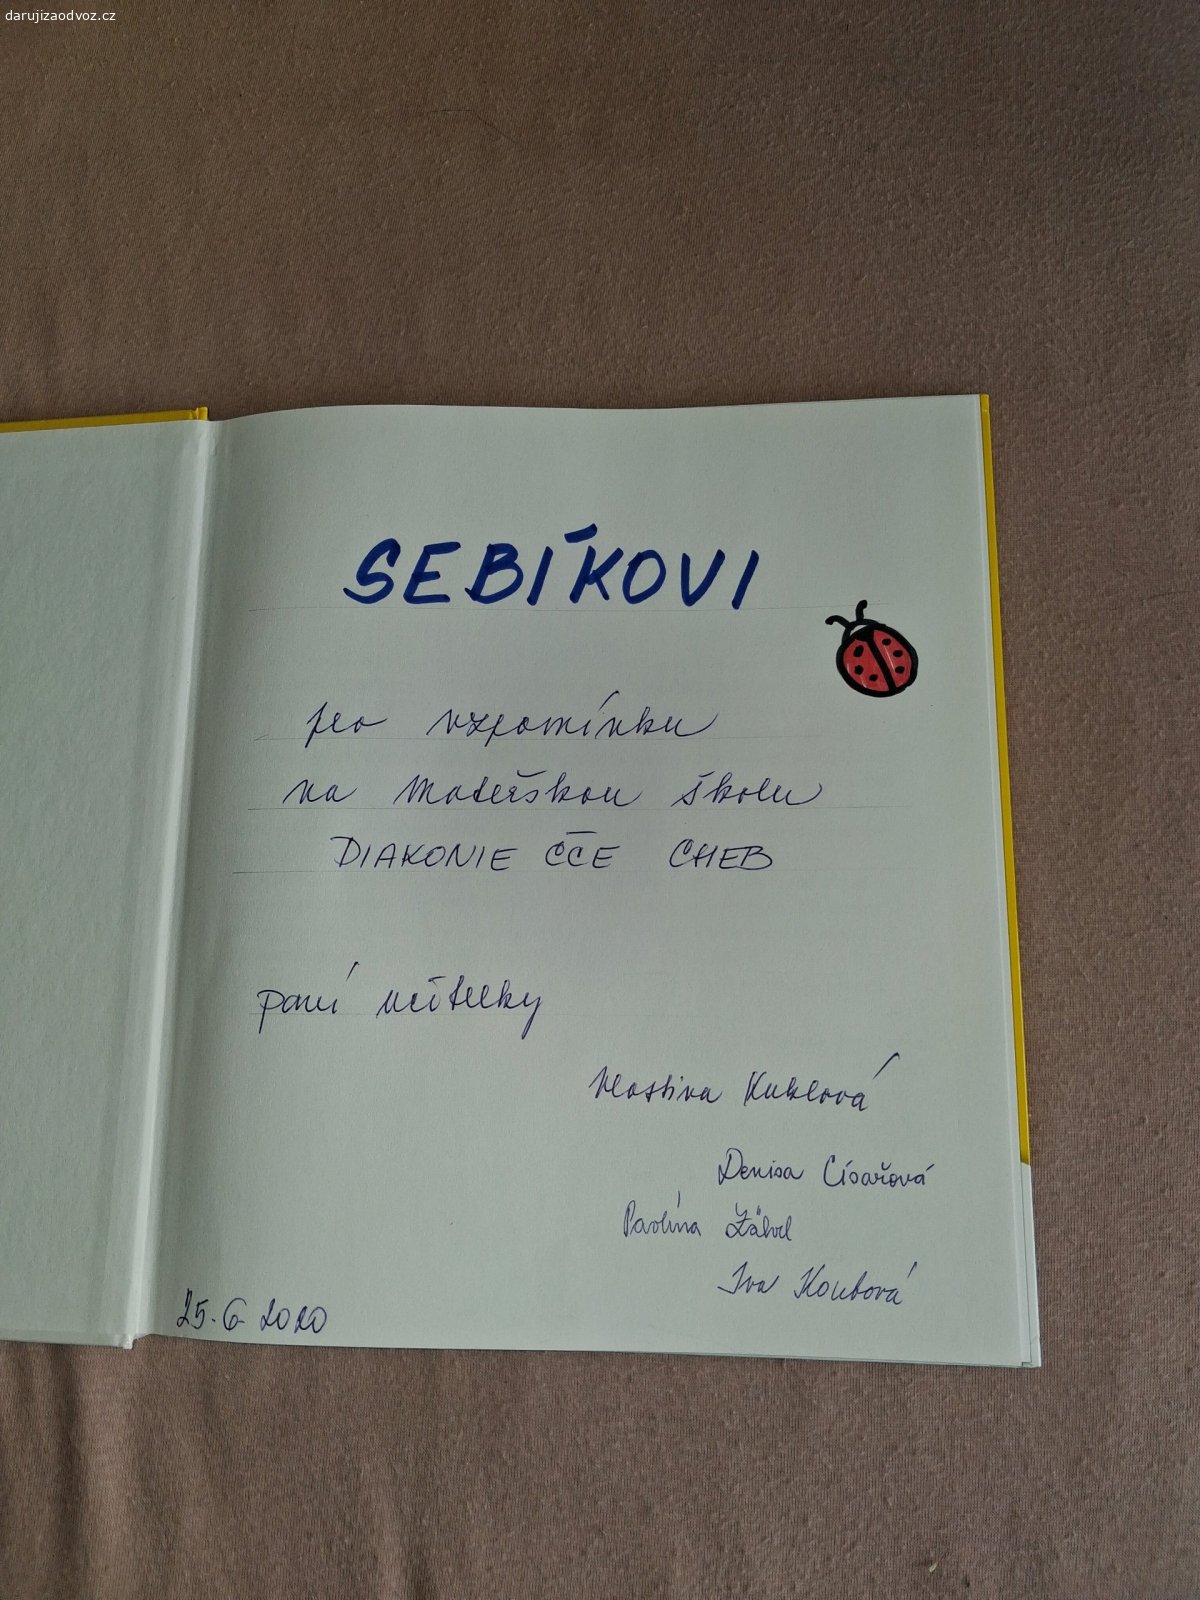 darujizaodvoz.cz
SEBÍKOVI
pro vzpomínku
na Mateřskou školu
DIAKONIE ČČE CHEB
paní učitelky
Vlastina Kuklová
Denisa Císařová
Pavlína
Iva Koubová
25.6 2020